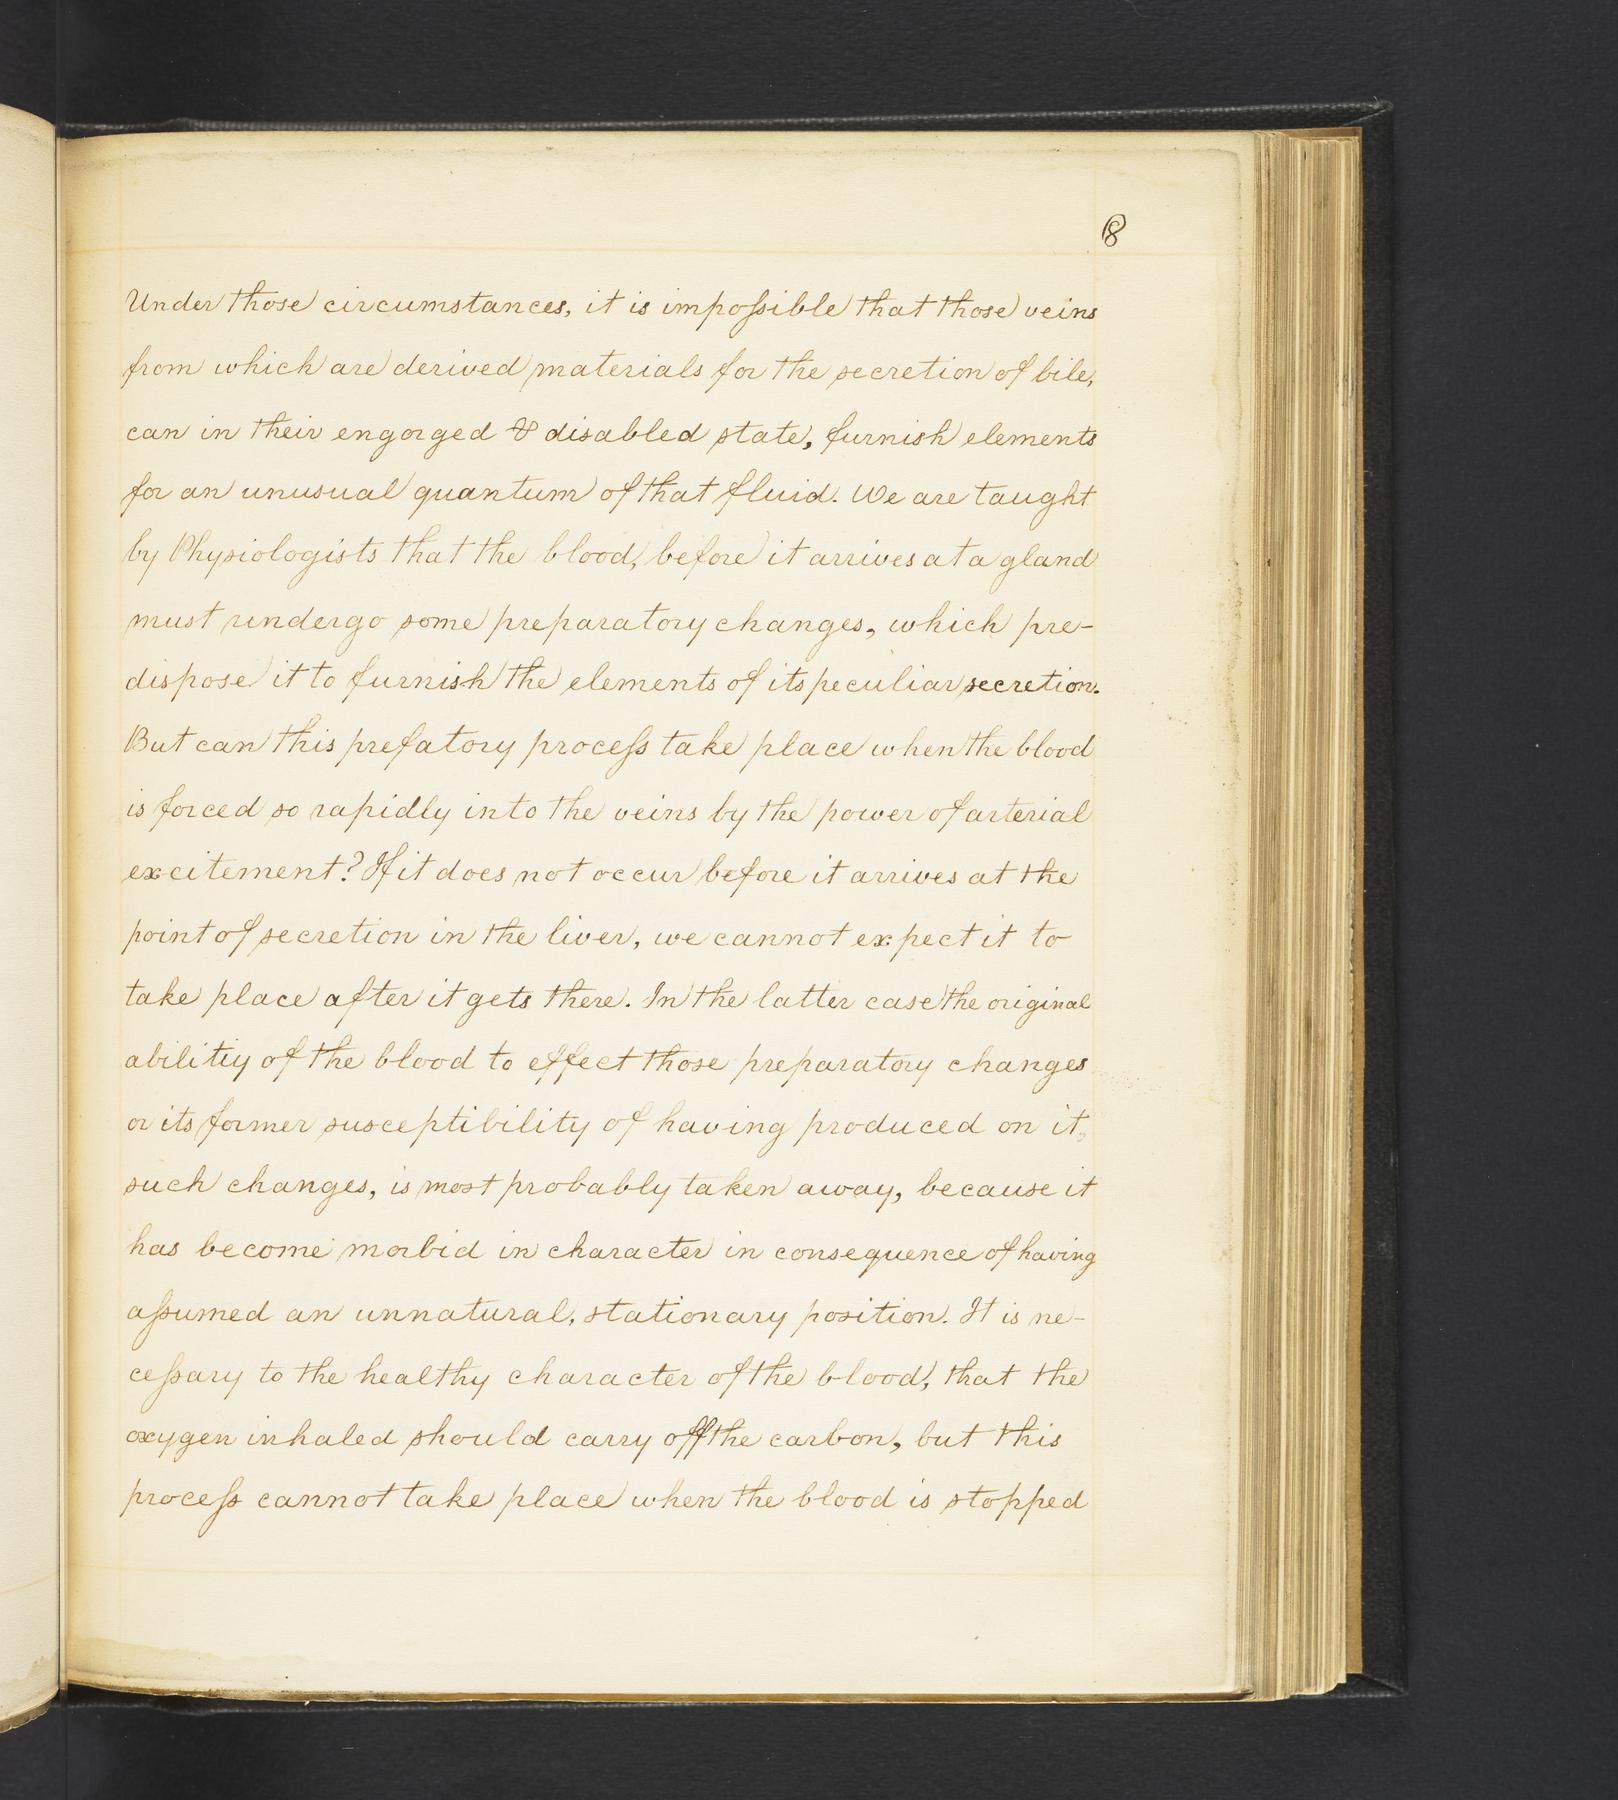 8
Under those circumstances, it is impoſsible that those veins
from which are derived materials for the secretion of bile,
can in their engorged & disabled state, furnish elements
for an unusual quantum of that fluid. We are taught
by Physiologists that the blood, before it arrives at a gland
must undergo some preparatory changes, which pre-
dispose it to furnish the elements of its peculiar secretion.
But can this prefatory proceſs take place when the blood
is forced so rapidly into the veins by the power of arterial
excitement? If it does not occur before it arrives at the
point of secretion in the liver, we cannot expect it to
take place after it gets there. In the latter case the original
abilitiy of the blood to effect those preparatory changes
or its former susceptibility of having produced on it,
such changes, is most probably taken away, because it
has become morbid in character in consequence of having
aſsumed an unnatural, stationary position. It is ne-
ceſsary to the healthy character of the blood, that the
oxygen inhaled should carry off the carbon, but this
proceſs cannot take place when the blood is stopped